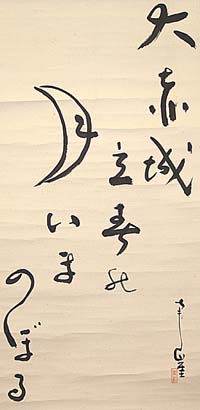 大赤城
立春の
月いま
のぼる